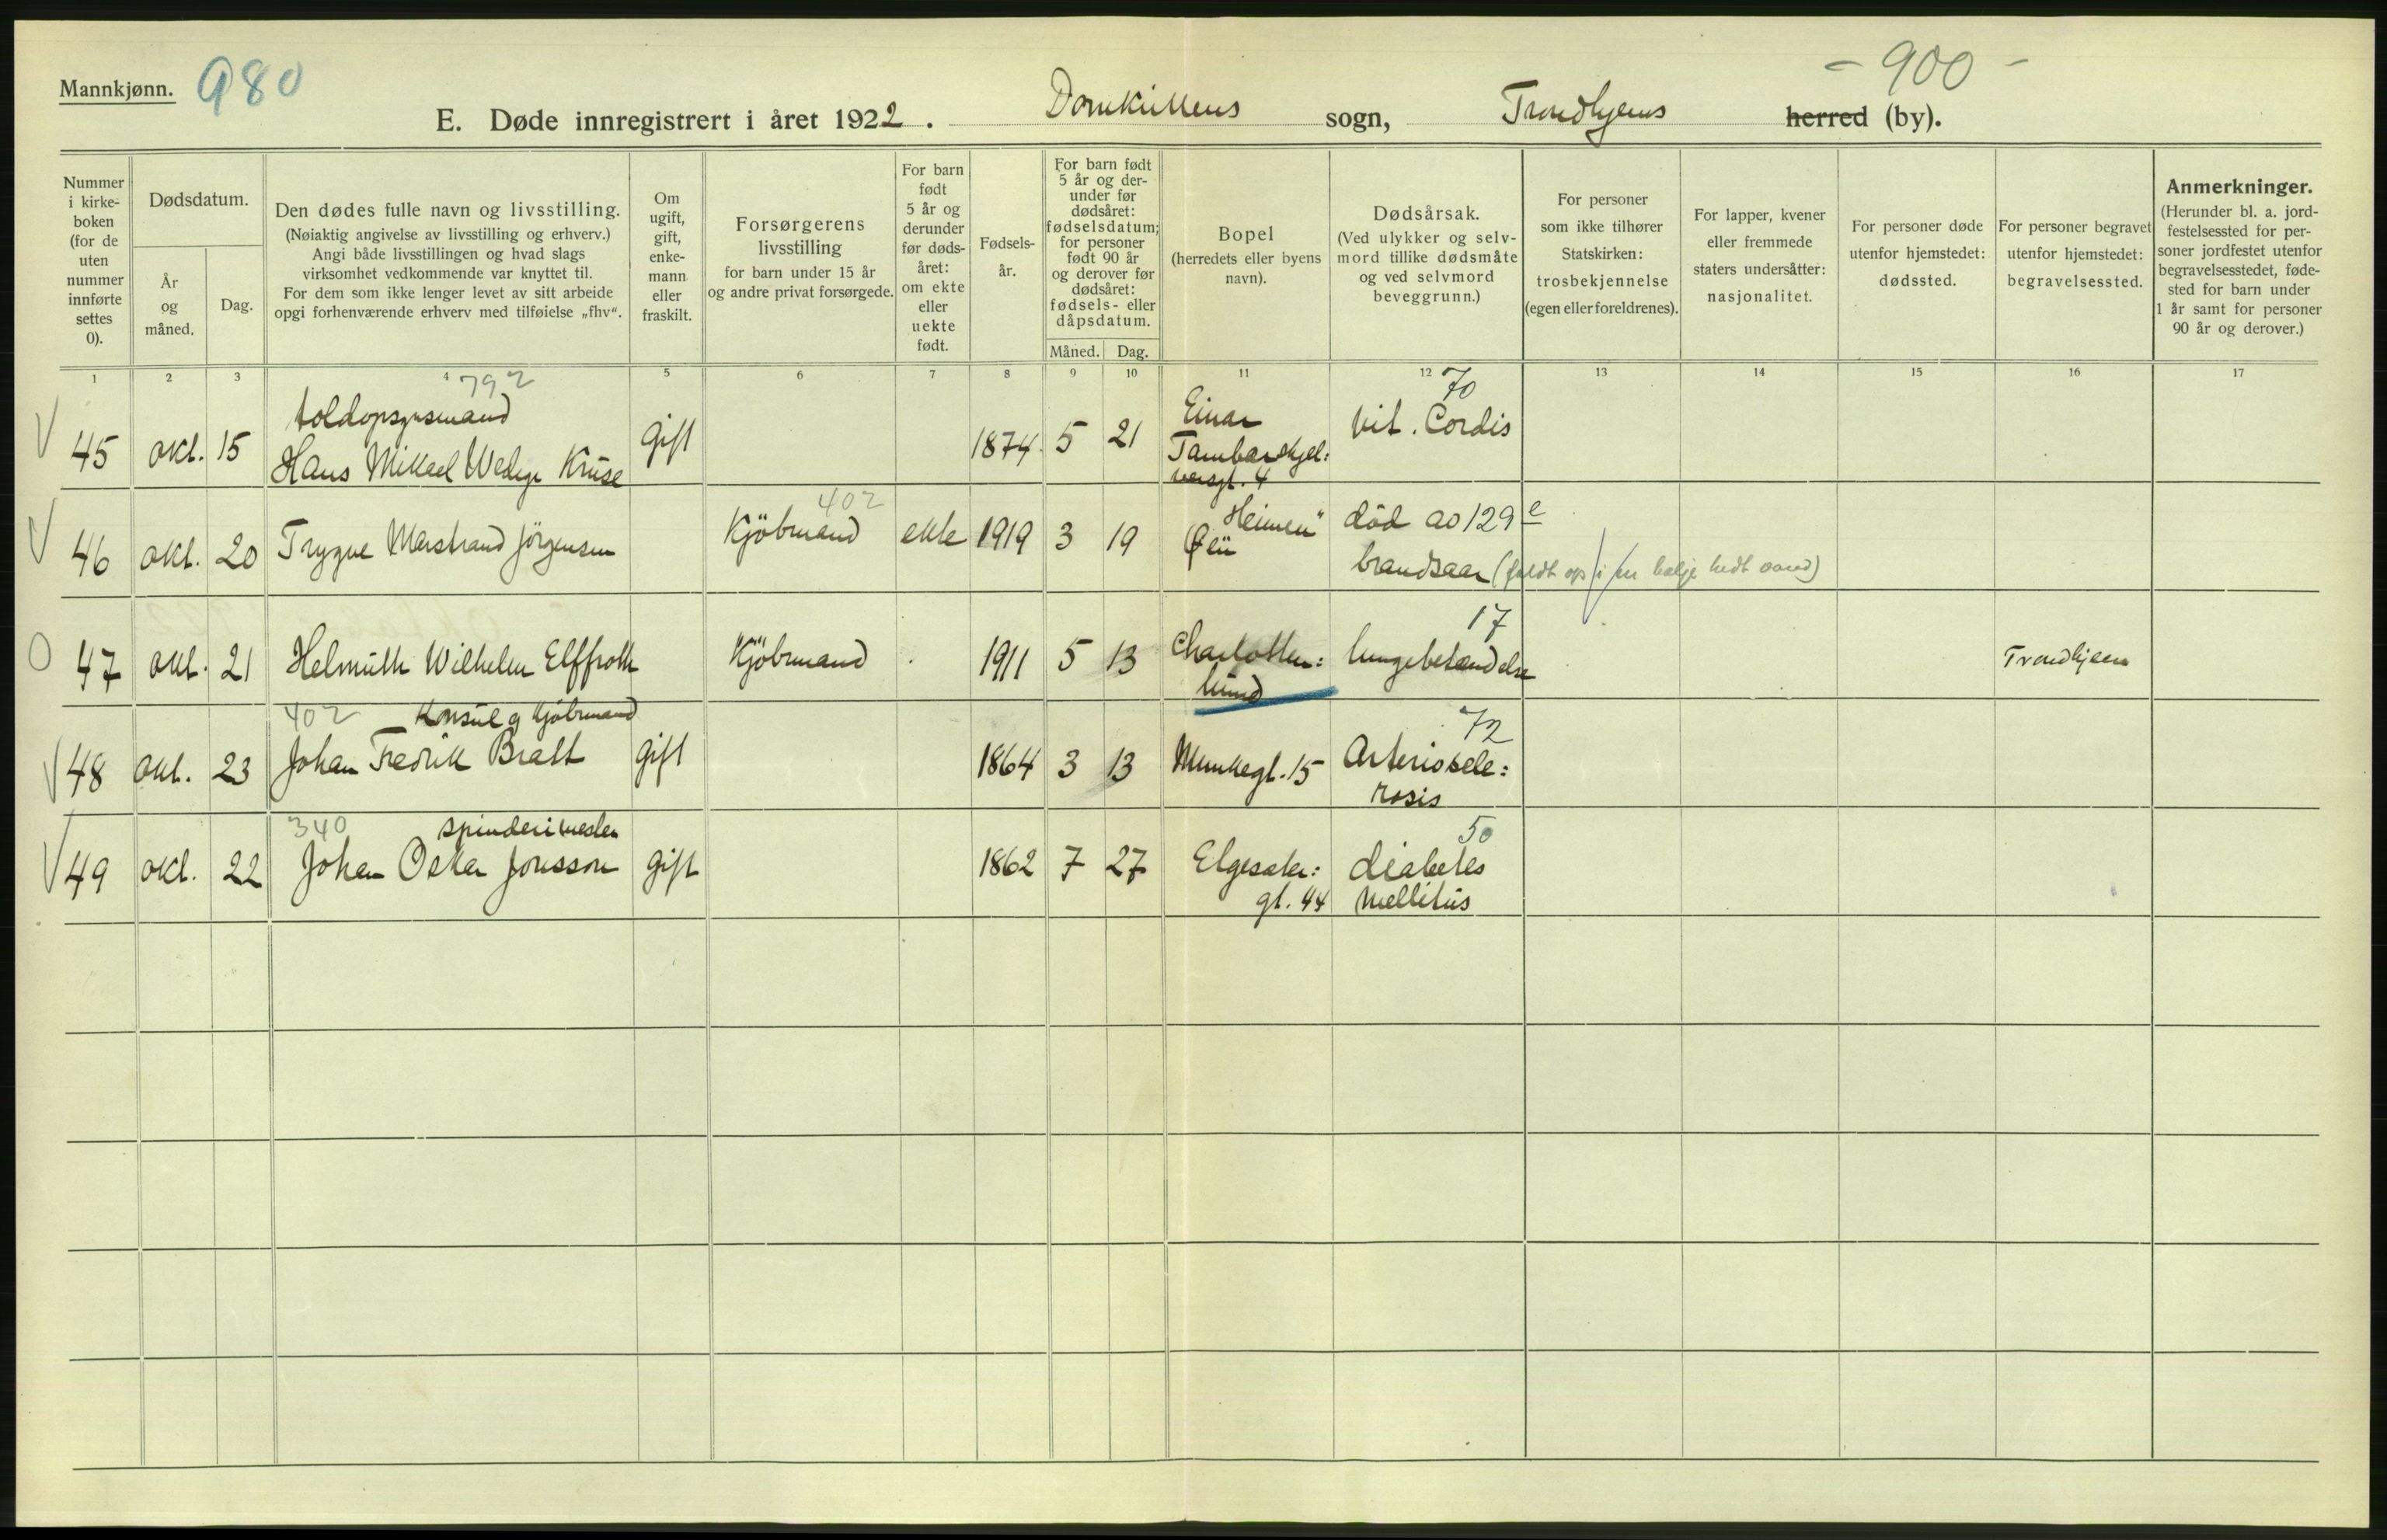 Mannkjønn. 980
- 900 -
E. Døde innregistrert i året 1922. Domkirkens sogn, Trondhjems herred (by).
Nummer i kirke- boken (for de uten nummer innførte settes 0).
Dødsdatum.
År og måned.
Dag.
Den dødes fulle navn og livsstilling.
(Nøiaktig angivelse av livsstilling og erhverv.)
Angi både livsstillingen og hvad slags
virksomhet vedkommende var knyttet til.
For dem som ikke lenger levet av sitt arbeide
opgi forhenværende erhverv med tilføielse „fhv“.
Om ugift, gift, enke- mann eller fraskilt.
Forsørgerens livsstilling
for barn under 15 år
og andre privat forsørgede.
For barn født 5 år og derunder før døds- året: om ekte eller uekte født.
Fødsels- år.
For barn født 5 år og der- under før dødsåret: fødselsdatum; for personer født 90 år og derover før dødsåret: fødsels- eller dåpsdatum.
Måned. Dag.
Bopel
(herredets eller byens navn).
Dødsårsak.
(Ved ulykker og selv- mord tillike dødsmåte og ved selvmord beveggrunn.)
For personer som ikke tilhører Statskirken: trosbekjennelse (egen eller foreldrenes).
For lapper, kvener eller fremmede staters undersåtter: nasjonalitet.
For personer døde utenfor hjemstedet: dødssted.
For personer begravet utenfor hjemstedet: begravelsessted.
Anmerkninger.
(Herunder bl. a. jord- festelsessted for per- soner jordfestet utenfor begravelsesstedet, føde- sted for barn under 1 år samt for personer 90 år og derover.)
1 2 3 4 5 6 7 8 9 10 11 12 13 14 15 16 17
792 70
toldopsynsmand
45 okt. 15 Hans Mikael Wedege Kruse gift 1874 5 21 Einar Tambarskjel: versgt. 4 Vit. Cordis
402
46 okt. 20 Trygve Marstrand Jörgensen Kjöbmand ekte 1919 3 19 Heimen" Øen död ao 129 e
brandsaar (faldt op i en balje hedt vand)
17
47 okt. 21 Helmuth Wilhelm Elffroth Kjöbmand 1911 5 13 Charlotten: lund lungebetændelse Trondhjem
402 Konsul og Kjöbmand 72
48 okt. 23 Johan Fredrik Bratt gift 1864 3 13 Munkegt. 15 Arterioscle: rosis
340 spinderimester 50
49 okt. 22 Johan Oskar Jonsson gift 1862 7 27 Elgesæter: gt. 44 diabetes mellitus